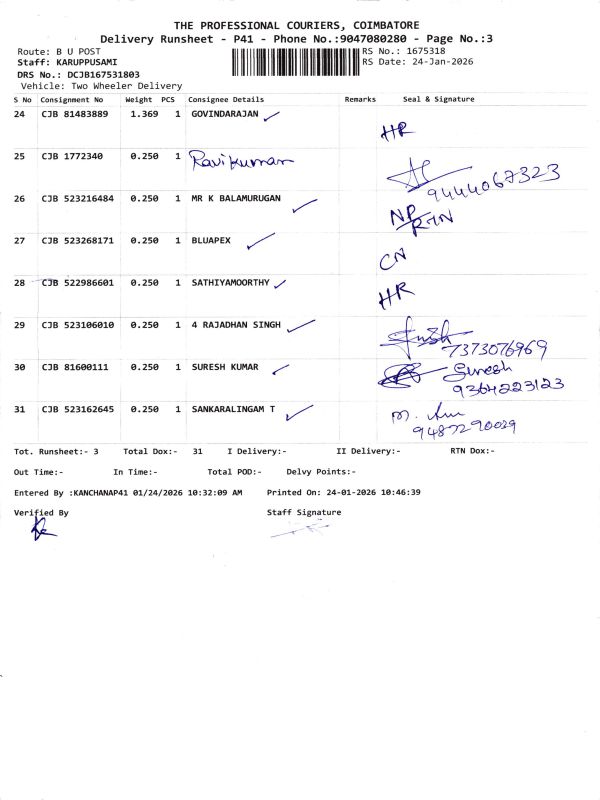 THE PROFESSIONAL COURIERS, COIMBATORE
Delivery Runsheet - P41 - Phone No.:9047080280 - Page No.:3
Route: B U POST RS No.: 1675318
Staff: KARUPPUSAMI RS Date: 24-Jan-2026
DRS No.: DCJB167531803
Vehicle: Two Wheeler Delivery
S No Consignment No Weight PCS Consignee Details Remarks Seal & Signature
24 CJB 81483889 1.369 1 GOVINDARAJAN ✓
HR
25 CJB 1772340 0.250 1 Ravikumar
9444067323
26 CJB 523216484 0.250 1 MR K BALAMURUGAN ✓
NP/RTN
27 CJB 523268171 0.250 1 BLUAPEX ✓
CN
28 CJB 522986601 0.250 1 SATHIYAMOORTHY ✓
HR
29 CJB 523106010 0.250 1 4 RAJADHAN SINGH ✓
7373076969
30 CJB 81600111 0.250 1 SURESH KUMAR ✓ Suresh
9364223123
31 CJB 523162645 0.250 1 SANKARALINGAM T ✓
9487290029
Tot. Runsheet:- 3 Total Dox:- 31 I Delivery:- II Delivery:- RTN Dox:-
Out Time:- In Time:- Total POD:- Delvy Points:-
Entered By :KANCHANAP41 01/24/2026 10:32:09 AM Printed On: 24-01-2026 10:46:39
Verified By Staff Signature